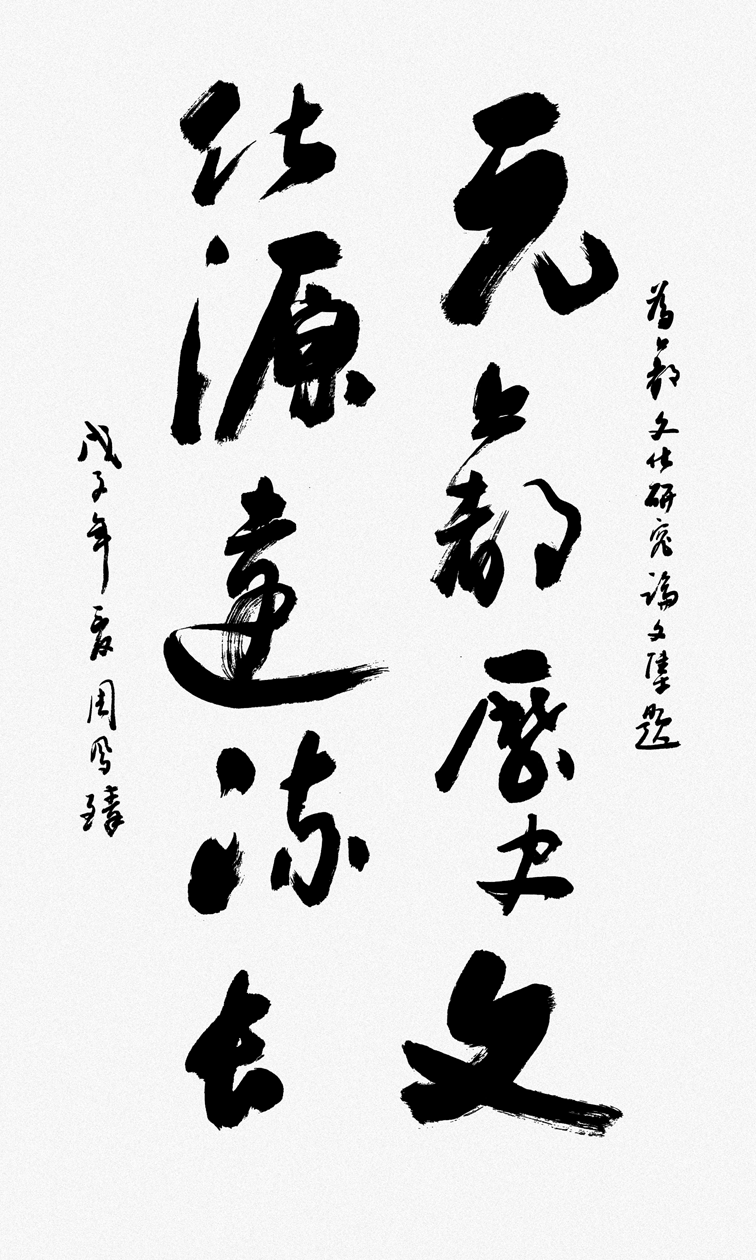 為上都文化研究論文集題
元上都歷史文
化源遠流長
戊子年夏周鳳臻